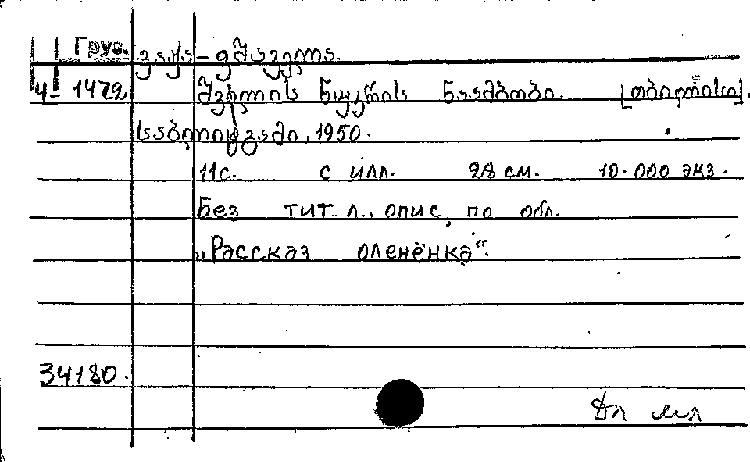 Груз. ვაჟა-ფშაველა.
4 1472 შვლის ნუკრის ნაამბობი. [თბილისი].
საბლიტგამი, 1950.
11 с. с илл. 28 см. 10.000 экз.
Без тит. л., опис. по обл.
"Рассказ оленёнка".
34180.